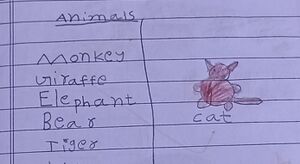 Animals
Monkey
Giraffe
Elephant
Bear
Tiger
cat